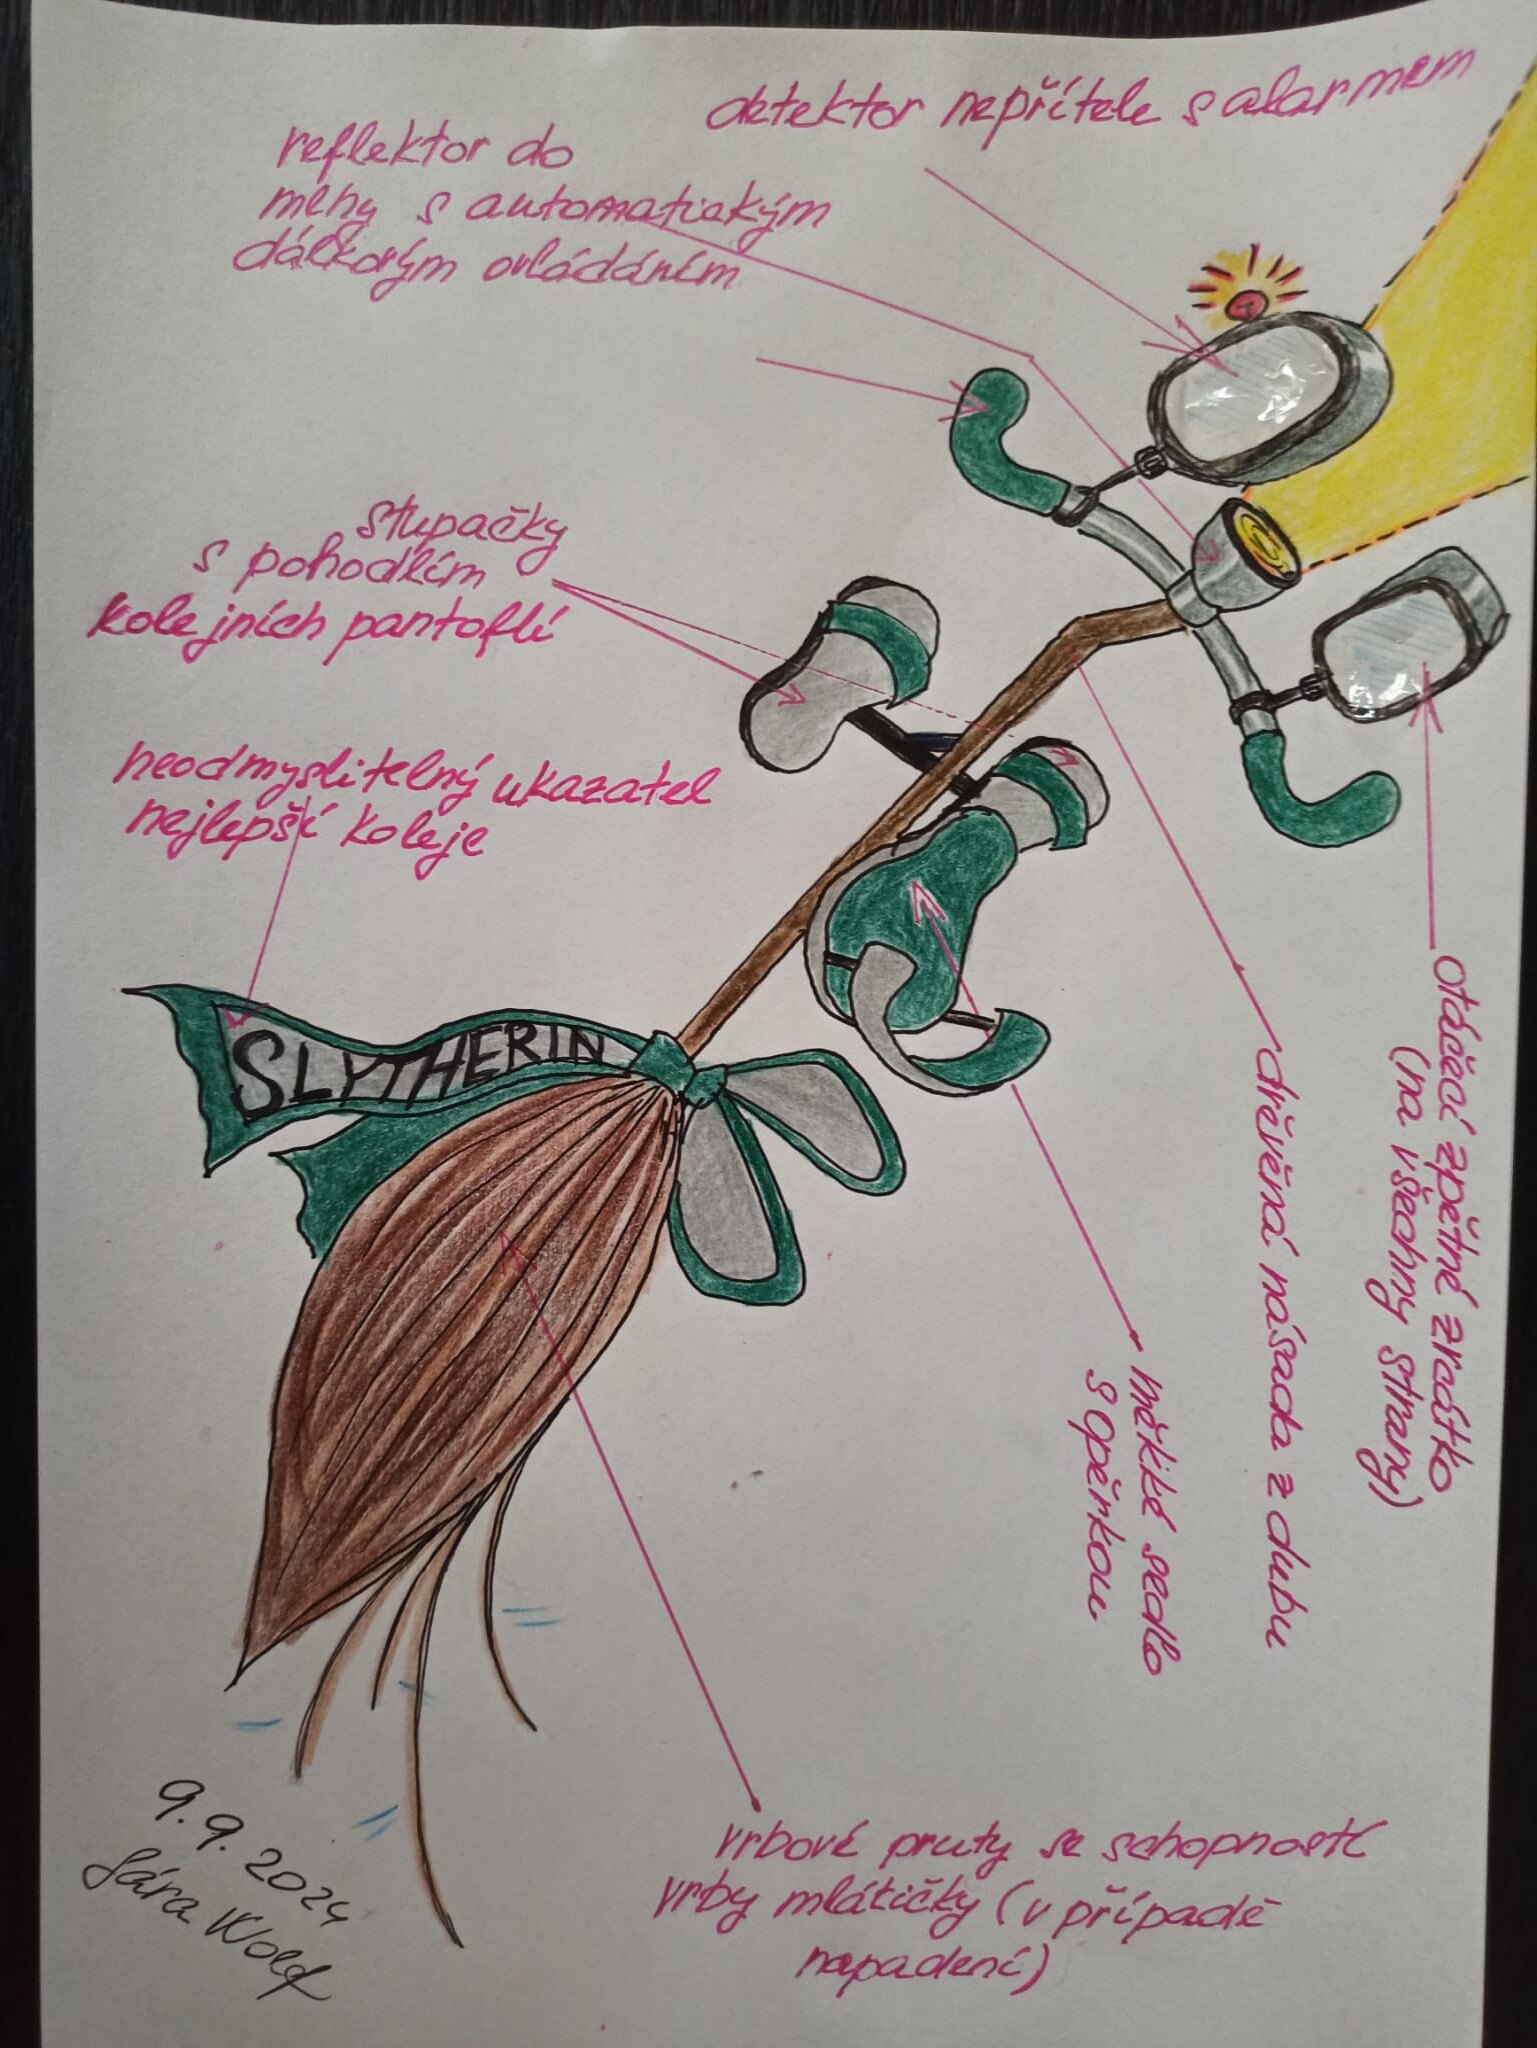 detektor nepřítele s alarmem
reflektor do
mlhy s automatickým
dálkovým ovládáním
stupačky
s pohodlím
kolejních pantoflí
neodmyslitelný ukazatel
nejlepší koleje
SLYTHERIN
otáčecí zpětné zrcátko
(na všechny strany)
dřvěná násada z dubu
měkké sedlo
s opěrkou
vrbové pruty se schopností
vrby mlátičky (v případě
napadení)
9.9.2024
Sára Wolf